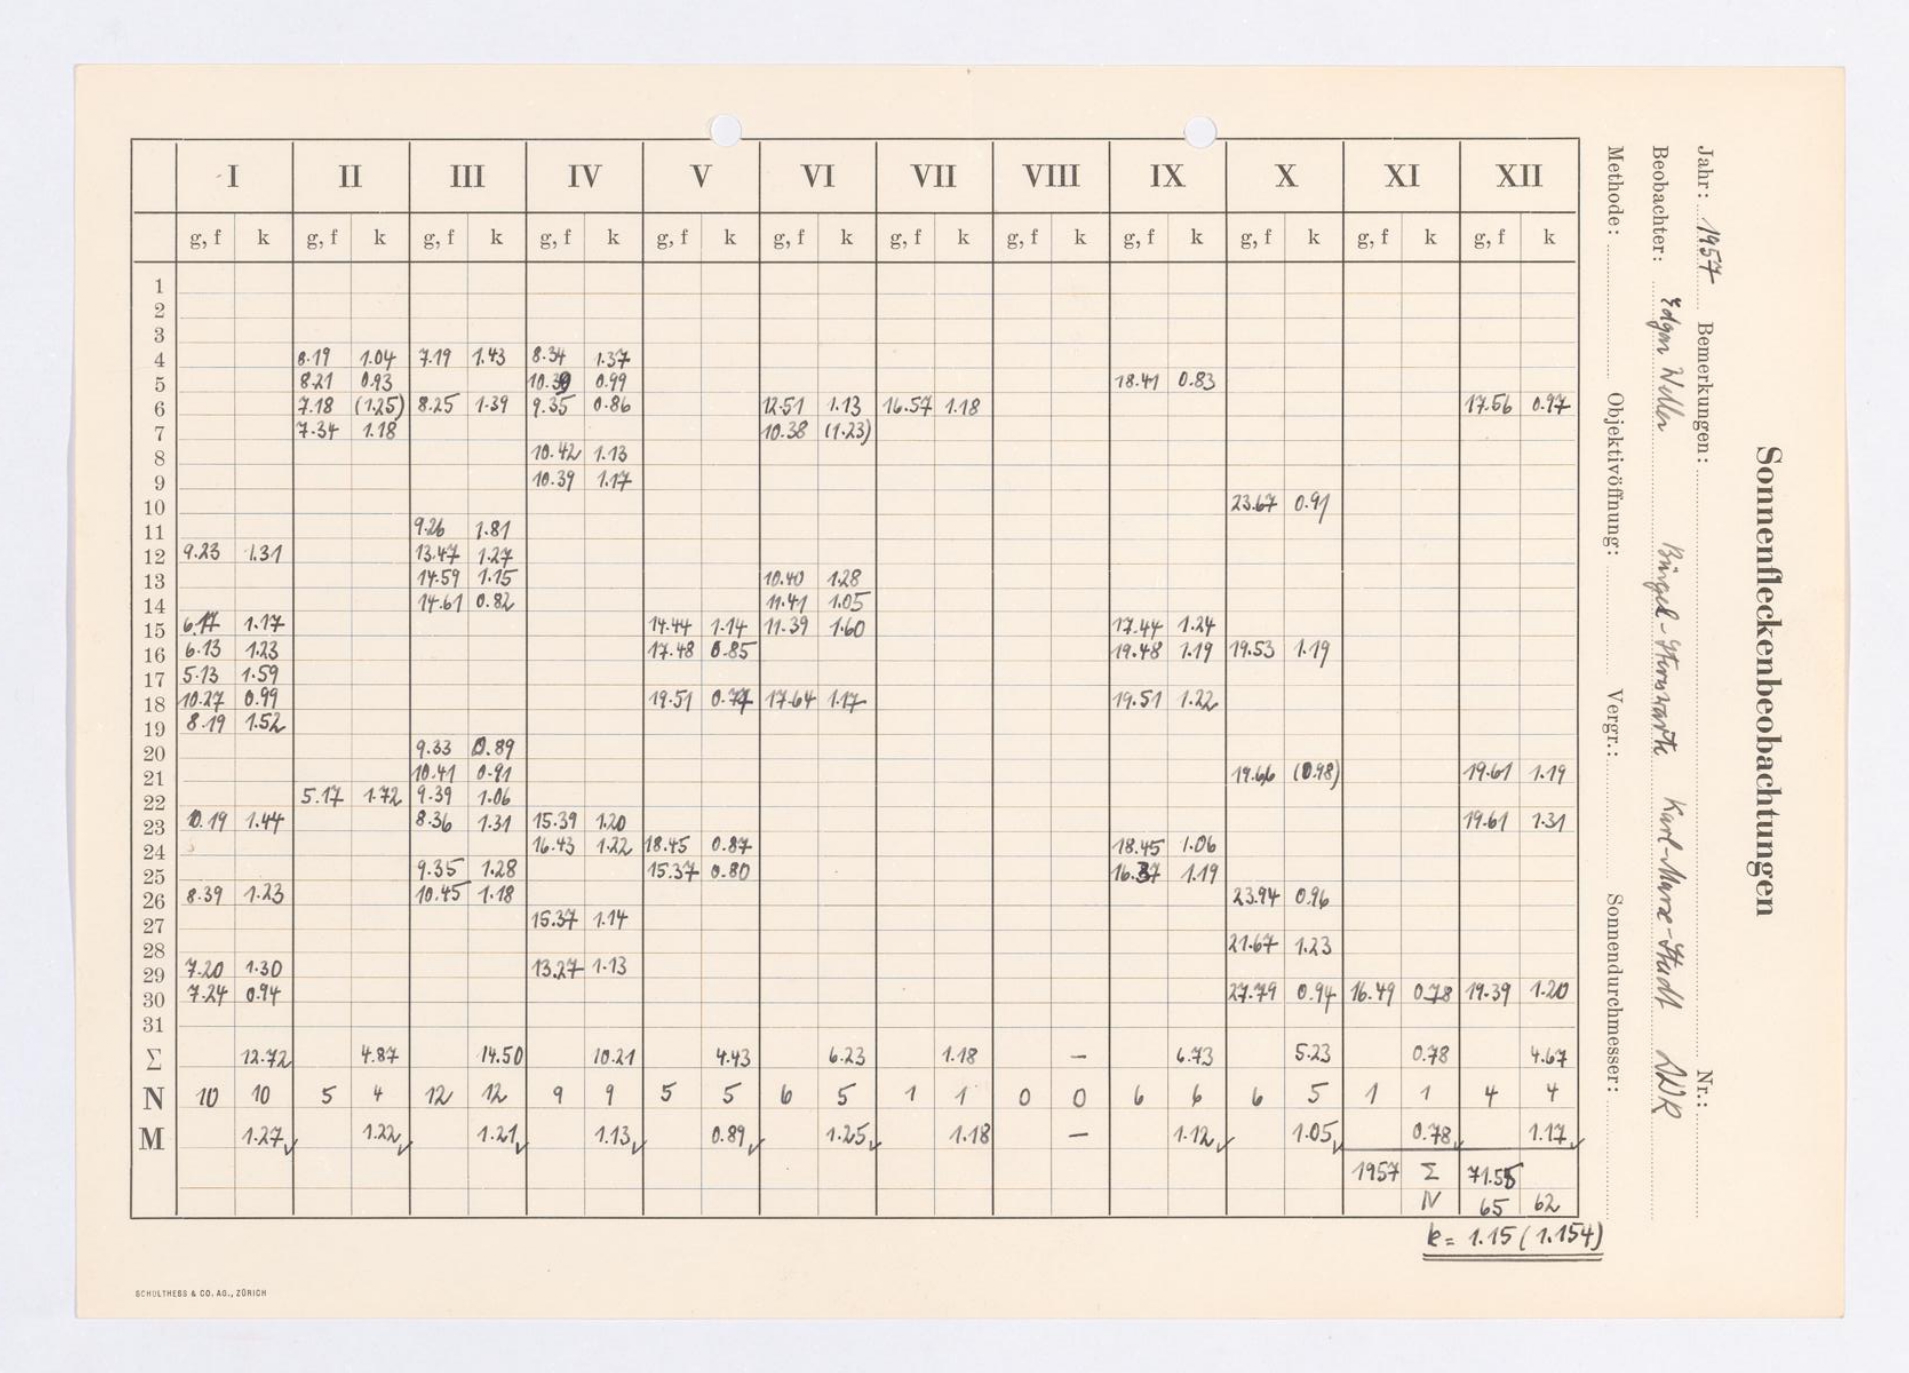 Sonnenfleckenbeobachtungen
Jahr: 1957 Bemerkungen: Nr.:
Beobachter: Edgar Bürgel-Sternwarte Karl-Marx-Stadt DDR
Methode: Objektivöffnung: Vergr.: Sonnendurchmesser:
I II III IV V VI VII VIII IX X XI XII
g, f k g, f k g, f k g, f k g, f k g, f k g, f k g, f k g, f k g, f k g, f k g, f k
1
2
3
4 8.19 1.04 7.19 1.43 8.34 1.37
5 8.21 0.93 0.99 18.41 0.83
6 7.18 (1.25) 8.25 1.39 9.35 0.86 12.51 1.13 16.57 1.18 17.56 0.97
7 7.34 1.18 10.38 (1.23)
8 10.42 1.13
9 10.39 1.17
10 23.67 0.91
11 9.26 1.81
12 9.23 1.31 13.47 1.27
13 14.59 1.15 10.40 1.28
14 14.61 0.82 11.41 1.05
15 6.17 1.17 14.44 1.14 11.39 1.60 17.44 1.24
16 6.13 1.23 17.48 0.85 19.48 1.19 19.53 1.19
17 5.13 1.59
18 10.27 0.99 19.51 0.77 17.64 1.17 19.51 1.22
19 8.19 1.52
20 9.33 0.89
21 10.41 0.91 19.66 (0.98) 19.61 1.19
22 5.17 1.72 9.39 1.06
23 1.44 8.36 1.31 15.39 1.20 19.61 1.31
24 16.43 1.22 18.45 0.87 18.45 1.06
25 9.35 1.28 15.37 0.80 16.37 1.19
26 8.39 1.23 10.45 1.18 23.94 0.96
27 15.37 1.14
28 21.67 1.23
29 7.20 1.30 13.27 1.13
30 7.24 0.94 27.79 0.94 16.49 0.78 19.39 1.20
31
Σ 12.72 4.87 14.50 10.21 4.43 6.23 1.18 — 6.73 5.23 0.78 4.67
N 10 10 5 4 12 12 9 9 5 5 6 5 1 1 0 0 6 6 6 5 1 1 4 4
M 1.27✓ 1.22✓ 1.21✓ 1.13✓ 0.89✓ 1.25✓ 1.18 — 1.12✓ 1.05✓ 0.78✓ 1.17✓
1957 Σ 71.55
N 65 62
k = 1.15 (1.154)
SCHULTHESS & CO. AG., ZÜRICH